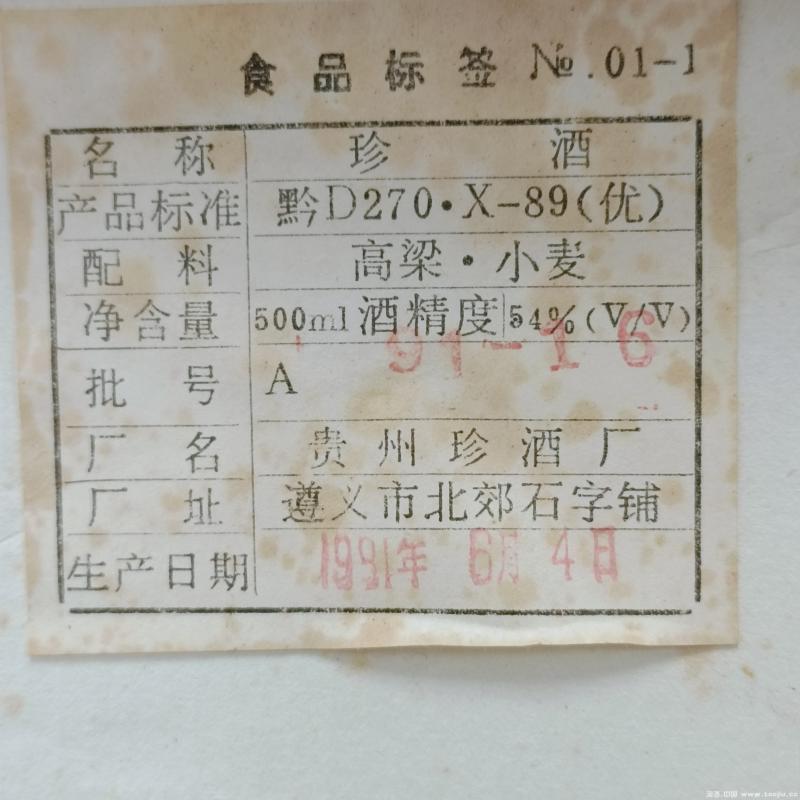 食品标签 №.01-1
名称 珍酒
产品标准 黔D270·X-89(优)
配料 高梁·小麦
净含量 500ml 酒精度 54%(V/V)
91-16
批号 A
厂名 贵州珍酒厂
厂址 遵义市北郊石字铺
生产日期 1991年 6月 4日
www.taojiu.cc